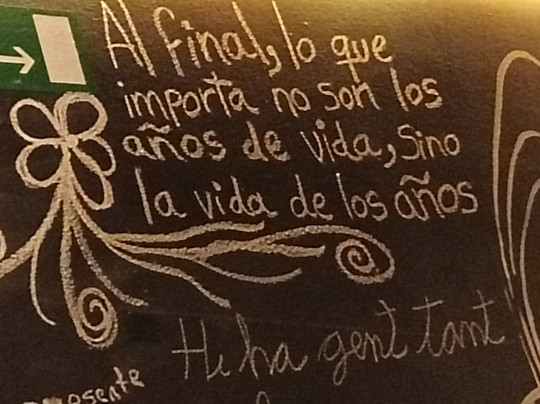 Al final, lo que
importa no son los
años de vida, sino
la vida de los años
Hi ha gent tant